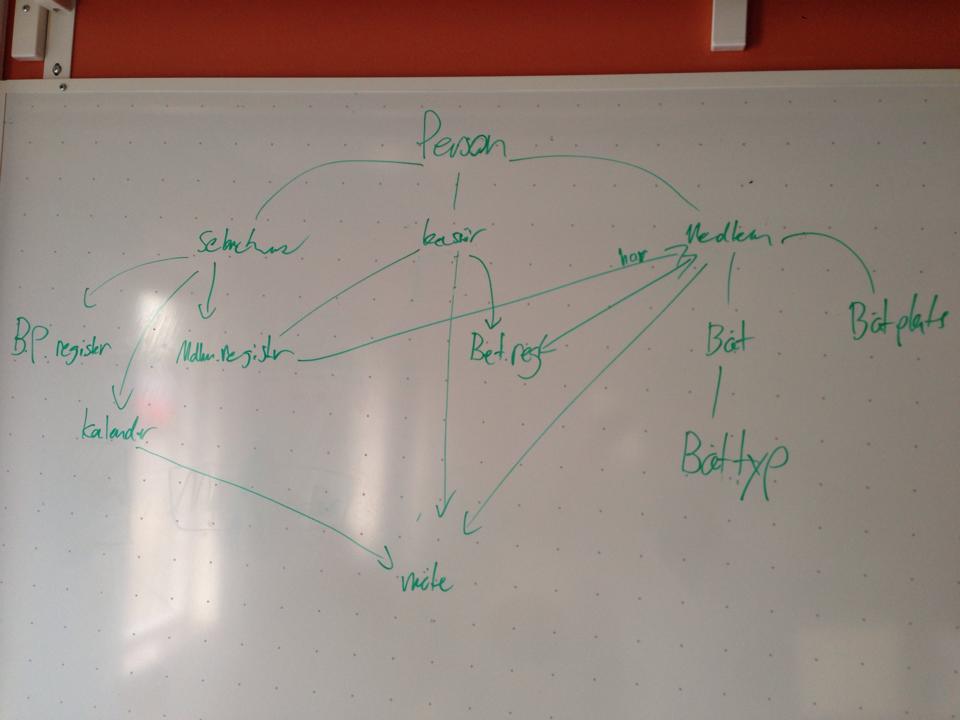 Person
kassör
Medlem
har
B.P. register
Medlem.register
Bet.reg
Båt
Båtplats
kalender
Båttyp
möte